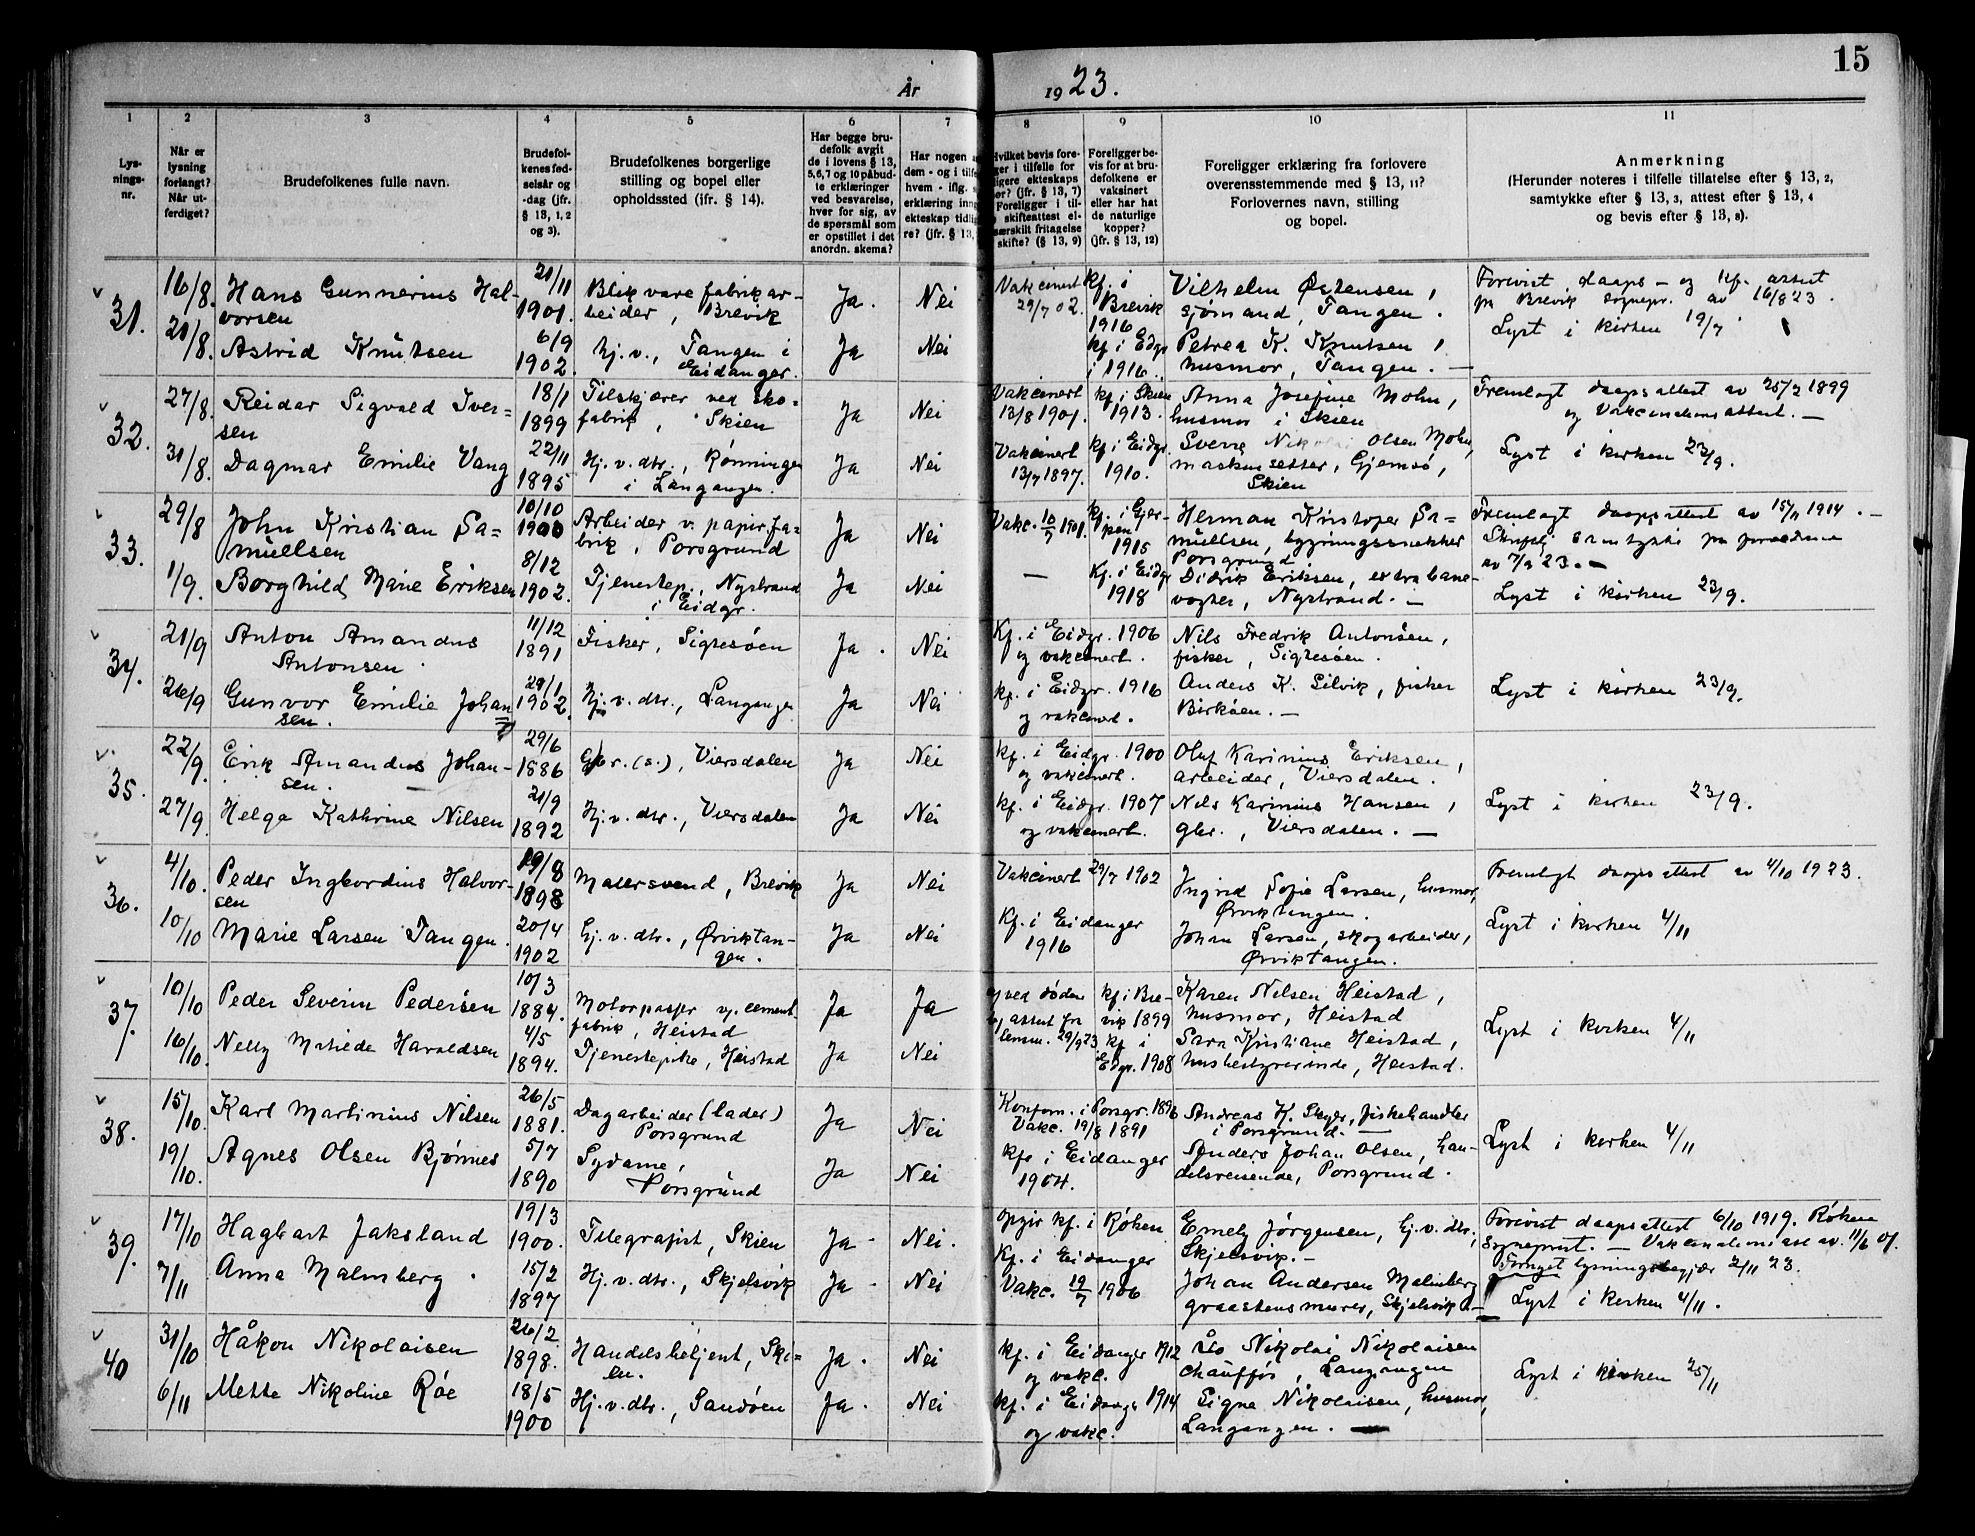 15
År 1923.
1 2 3 4 5 6 7 8 9 10 11
Lys-
nings-
nr.
Når er
lysning
forlangt?
Når ut-
ferdiget?
Brudefolkenes fulle navn.
Brudefol-
kenes fød-
selsår og
-dag (jfr.
§ 13, 1, 2
og 3).
Brudefolkenes borgerlige
stilling og bopel eller
opholdssted (ifr. § 14).
Har begge bru-
defolk avgit
de i lovens § 13,
5, 6, 7 og 10 påbud-
te erklæringer
ved besvarelse,
hver for sig, av
de spørsmål som
er opstillet i det
anordn. skema?
Har nogen a
dem - og i tilfe
hvem - iflg. s
erklæring inng
ekteskap tidli
re? (jfr. § 13,
Hvilket bevis fore-
ger i tilfelle for
ligere ekteskaps
ør? (jfr. § 13, 7)
Foreligger i til-
skifteattest el-
særskilt fritagelse
skifte? (§ 13, 9)
Foreligger be-
vis for at bru-
defolkene er
vaksinert
eller har hat
de naturlige
kopper?
(jfr. § 13, 12)
Foreligger erklæring fra forlovere
overensstemmende med § 13, 11?
Forlovernes navn, stilling
og bopel.
Anmerkning
(Herunder noteres i tilfelle tillatelse efter § 13, 2,
samtykke efter § 13, 3, attest efter § 13, 4
og bevis efter § 13, 8).
31.
16/8. Hans Gunnerius Hal-
vorsen
21/11
1901.
Blikvarefabrikar-
beider, Brevik
Ja. Nei
Vakcinert
29/7 02.
kf. i
Brevik
1916
Vilhelm Østensen,
sjømand, Tangen.
Forevist daaps- og kf. attest
fr Brevik sognepr. av 16/8 23.
Lyst i kirken 19/7
21/8. Astrid Knutsen
6/9
1902.
hj.v., Tangen i
Eidanger.
Ja Nei
kf i Eidgr
i 1916.
Petrea K. Knutsen,
husmor, Tangen. —
32.
27/8. Reidar Sigvald Iver-
sen
18/1
1899
Tilskjærer ved sko-
fabrik, Skien
Ja Nei
Vakcinert
13/8 1901.
kf. i Skien
1913.
Anna Josefine Mohn,
husmor i Skien
Fremlagt daapsattest av 25/2 1899
og vakcinationsattest. —
31/8. Dagmar Emilie Vang
22/11
1895
Hj.v.dtr., Rønningen
i Langangen.
Ja Nei
Vakcinert
13/7 1897.
kf. i Eidgr.
1910.
Sverre Nikolai Olsen Mohn,
maskinsetter, Gjemsø,
Skien
Lyst i kirken 23/9.
33.
29/8 John Kristian Sa=
muellsen
10/10
1900
Arbeider v. papirfa-
brik, Porsgrund
Ja Nei
Vakc. 10/7 1901.
kf. i Gjer-
pen
1915
Herman Kristofer Sa=
muellsen, bygningssnekker
Porsgrund
Fremlagt daapsattest av 15/11 1914. —
Skriftlig samtykke fra forældrene
av 7/9 23. —
1/9. Borghild Marie Eriksen
8/12
1902.
Tjenestep., Nystrand
i Eidgr.
Ja Nei
—
Kf. i Eidgr
1918
Didrik Eriksen, extra bane-
vogter, Nystrand. —
Lyst i kirken 23/9.
34.
21/9 Anton Amandus
Antonsen.
11/12
1891
Fisker, Sigtesøen
Ja. Nei
Kf. i Eidgr. 1906
og vakcinert.
Nils Fredrik Antonsen,
fisker, Sigtesøen.
26/9 Gunvor Emilie Johan
sen.
29/1
1902.
Hj.v.dtr., Langangen
Ja Nei
kf. i Eidgr. 1916
og vakcinert.
Anders K. Silvik, fisker
Birkøen. —
Lyst i kirken 23/9.
35.
22/9. Erik Amandus Johan-
sen.
29/6
1886
Gbr.(s.), Viersdalen
Ja Nei
kf. i Eidgr. 1900
og vakcinert.
Oluf Karinius Eriksen,
arbeider, Viersdalen.
27/9. Helga Kathrine Nilsen
21/9
1892
Hj.v.dtr., Viersdalen
Ja Nei
kf. i Eidgr. 1907
og vakcinert.
Nils Karinius Hansen,
gbr., Viersdalen. —
Lyst i kirken 23/9.
36.
4/10. Peder Ingvordius Halvor-
sen
19/8
1898
Malersvend, Brevik
Ja Nei
Vakcinert 29/7 1902
Ingrid Sofie Larsen, husmor,
Ørviktangen.
Fremlagt daapsattest av 4/10 1923.
10/10 Marie Larsen Tangen.
20/4
1902
Hj.v.dtr., Ørviktan-
gen.
Ja Nei
Kf. i Eidanger
1916
Johan Larsen, skogarbeider,
Ørviktangen.
Lyst i kirken 4/11
37.
10/10 Peder Severin Pedersen
10/3
1884.
Motorpasser v. cement-
fabrik, Heistad
Ja Ja
ved døden
attest fra
lensm. 29/9 23
kf i Bre-
vik 1899
Karen Nilsen Heistad,
husmor, Heistad
16/10. Nelly Matilde Haraldsen
4/5
1894.
Tjenestepike, Heistad
Ja Nei
kf i
Eidgr. 1908
Sara Kristiane Heistad,
husbestyrerinde, Heistad.
Lyst i kirken 4/11
38.
15/10. Karl Martinius Nilsen
26/5
1881.
Dagarbeider (lader)
Porsgrund
Ja Nei
Konform. i Porsgr. 1896
Vakc. 19/8 1891
Andreas K. Skyer, fiskehandler
i Porsgrund. —
19/10. Agnes Olsen Bjønnes
5/7
1890
Sydame,
Porsgrund
Ja Nei
kf. i Eidanger
1904.
Anders Johan Olsen, han-
delsreisende, Porsgrund.
Lyst i kirken 4/11
39.
17/10 Hagbart Jaksland
19/3
1900.
Telegrafist, Skien
Ja Nei.
opgir kf. i Røken
Emely Jørgensen, hj.v.dtr.,
Skjelsvik. —
Forevist daapsattest 6/10 1919. Røken
sogneprest. — Vakcinationsatt av 11/6 01.
Fornyet lysningsbegjær 2/11 23.
7/11 Anna Malmberg.
15/2
1897
Hj.v.dtr., Skjelsvik
Ja Nei
Kf. i Eidanger
Vakc. 19/7 1906
Johan Andersen Malmberg
graastensmurer, Skjelsvik —
Lyst i kirken 4/11.
40
31/10 Håkon Nikolaisen
26/2
1898.
Handelsbetjent, Ski=
en.
Ja. Nei
kf. i Eidanger 1912
og vakc.
Nikolai Nikolaisen
chauffør, Langangen
6/11 Mette Nikoline Røe
18/5
1900
Hj.v.dtr., Sandøen
Ja. Nei
kf. i Eidanger 1914
og vakc.
Signe Nikolaisen, husmor,
Langangen. —
Lyst i kirken 25/11